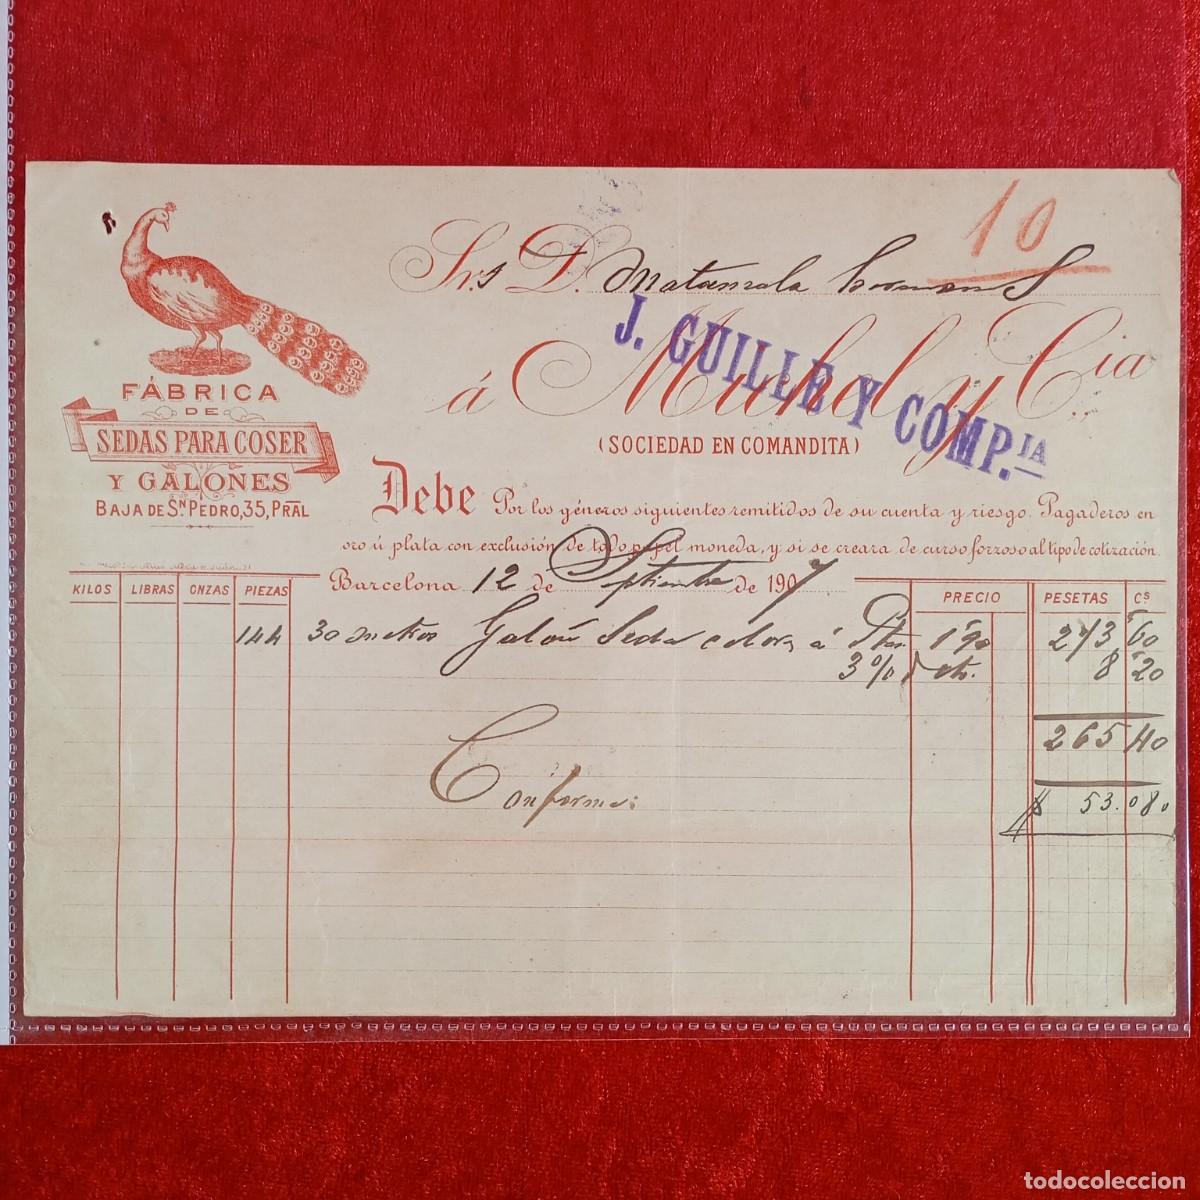 10
Srs D. Matamala hermanos
á Muhel y Cia
J. GUILLE Y COMP.IA
(SOCIEDAD EN COMANDITA)
FÁBRICA
DE
SEDAS PARA COSER
Y GALONES
BAJA DE SN PEDRO, 35, PRAL
Debe Por los géneros siguientes remitidos de su cuenta y riesgo. Pagaderos en
oro ú plata con exclusión de todo papel moneda, y si se creara de curso forzoso al tipo de cotización.
Barcelona 12 de Septiembre de 1907
KILOS LIBRAS ONZAS PIEZAS PRECIO PESETAS CS
144 30 metros Galón Seda colores á Ptas. 1'90 273,60
3 % dto. 8 20
265 40
Conforme:
$ 53.080
todocoleccion